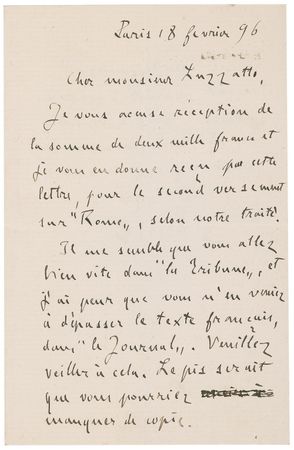 Paris 18 février 96
Cher monsieur Luzzatto,
Je vous accuse réception de
la somme de deux mille francs et
je vous en donne reçu par cette
lettre, pour le second versement
sur "Rome", selon notre traité.
Il me semble que vous allez
bien vite dans "la Tribune", et
j'ai peur que vous n'en veniez
à dépasser le texte français,
dans "le Journal". Veuillez
veiller à cela. Le pis serait
que vous pourriez
manquer de copie.